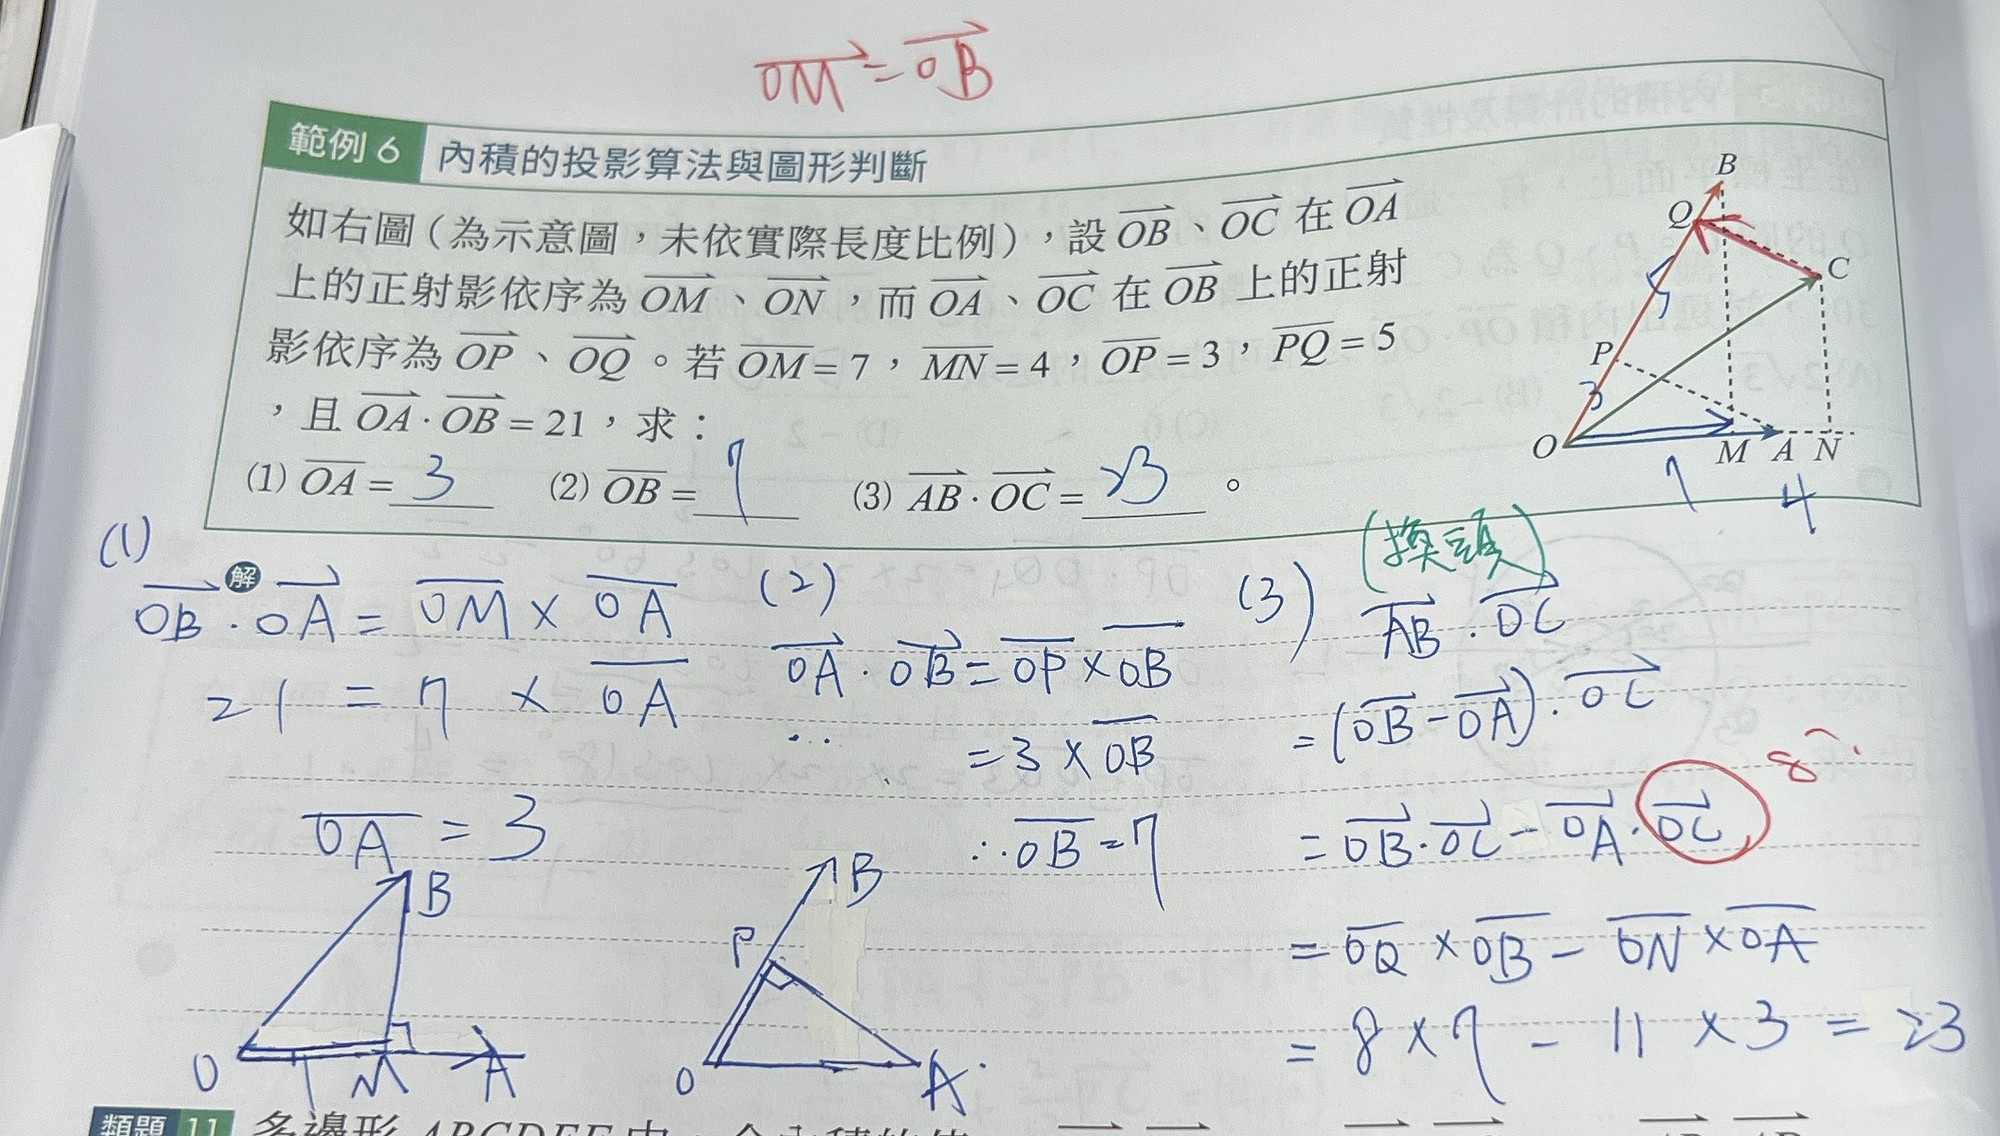 OM = OB
範例 6 內積的投影算法與圖形判斷
如右圖(為示意圖,未依實際長度比例),設 OB、OC 在 OA
上的正射影依序為 OM、ON,而 OA、OC 在 OB 上的正射
影依序為 OP、OQ。若 OM = 7,MN = 4,OP = 3,PQ = 5
,且 OA · OB = 21,求:
(1) OA = 3 (2) OB = 7 (3) AB · OC = 23 。
B
Q
C
5
P
3
O M A N
7 4
(1)
解
OB · OA = OM × OA
21 = 7 × OA
OA = 3
B
O 7 M A
(2)
OA · OB = OP × OB
= 3 × OB
∴ OB = 7
B
P
O A
(3) (換頭)
AB · OC
= (OB - OA) · OC
8
= OB · OC - OA · OC
= OQ × OB - ON × OA
= 8 × 7 - 11 × 3 = 23
類題 11 多邊形 ABCDEF 中